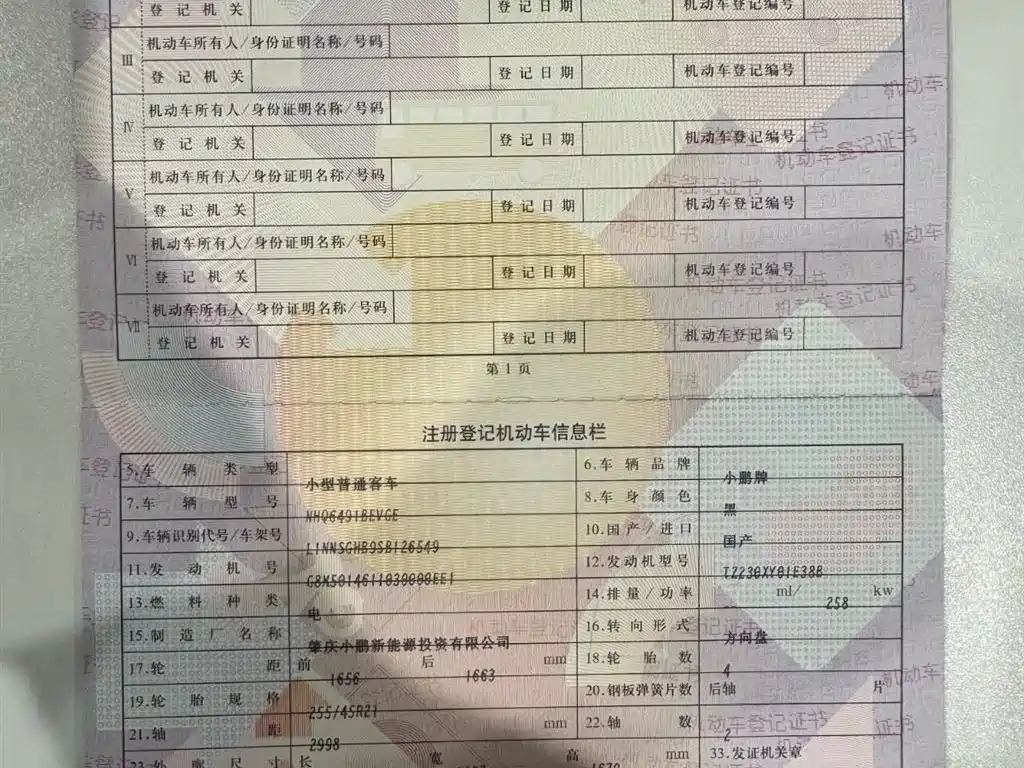 登记机关 登记日期 机动车登记编号
Ⅲ 机动车所有人/身份证明名称/号码
登记机关 登记日期 机动车登记编号
Ⅳ 机动车所有人/身份证明名称/号码
登记机关 登记日期 机动车登记编号
Ⅴ 机动车所有人/身份证明名称/号码
登记机关 登记日期 机动车登记编号
Ⅵ 机动车所有人/身份证明名称/号码
登记机关 登记日期 机动车登记编号
Ⅶ 机动车所有人/身份证明名称/号码
登记机关 登记日期 机动车登记编号
第1页
注册登记机动车信息栏
5.车辆类型 小型普通客车 6.车辆品牌 小鹏牌
7.车辆型号 NHQ6491BEVGE 8.车身颜色 黑
9.车辆识别代号/车架号 L1NNSGHB9SB126549 10.国产/进口 国产
11.发动机号 G8X5014611030000EE1 12.发动机型号 TZ230XY01E38B
13.燃料种类 电 14.排量/功率 ml/ 258 kw
15.制造厂名称 肇庆小鹏新能源投资有限公司 16.转向形式 方向盘
17.轮距 前 1656 后 1663 mm 18.轮胎数 4
19.轮胎规格 255/45R21 20.钢板弹簧片数 后轴 片
21.轴距 2998 mm 22.轴数 2
23.外廓尺寸 长 宽 高 mm 33.发证机关章